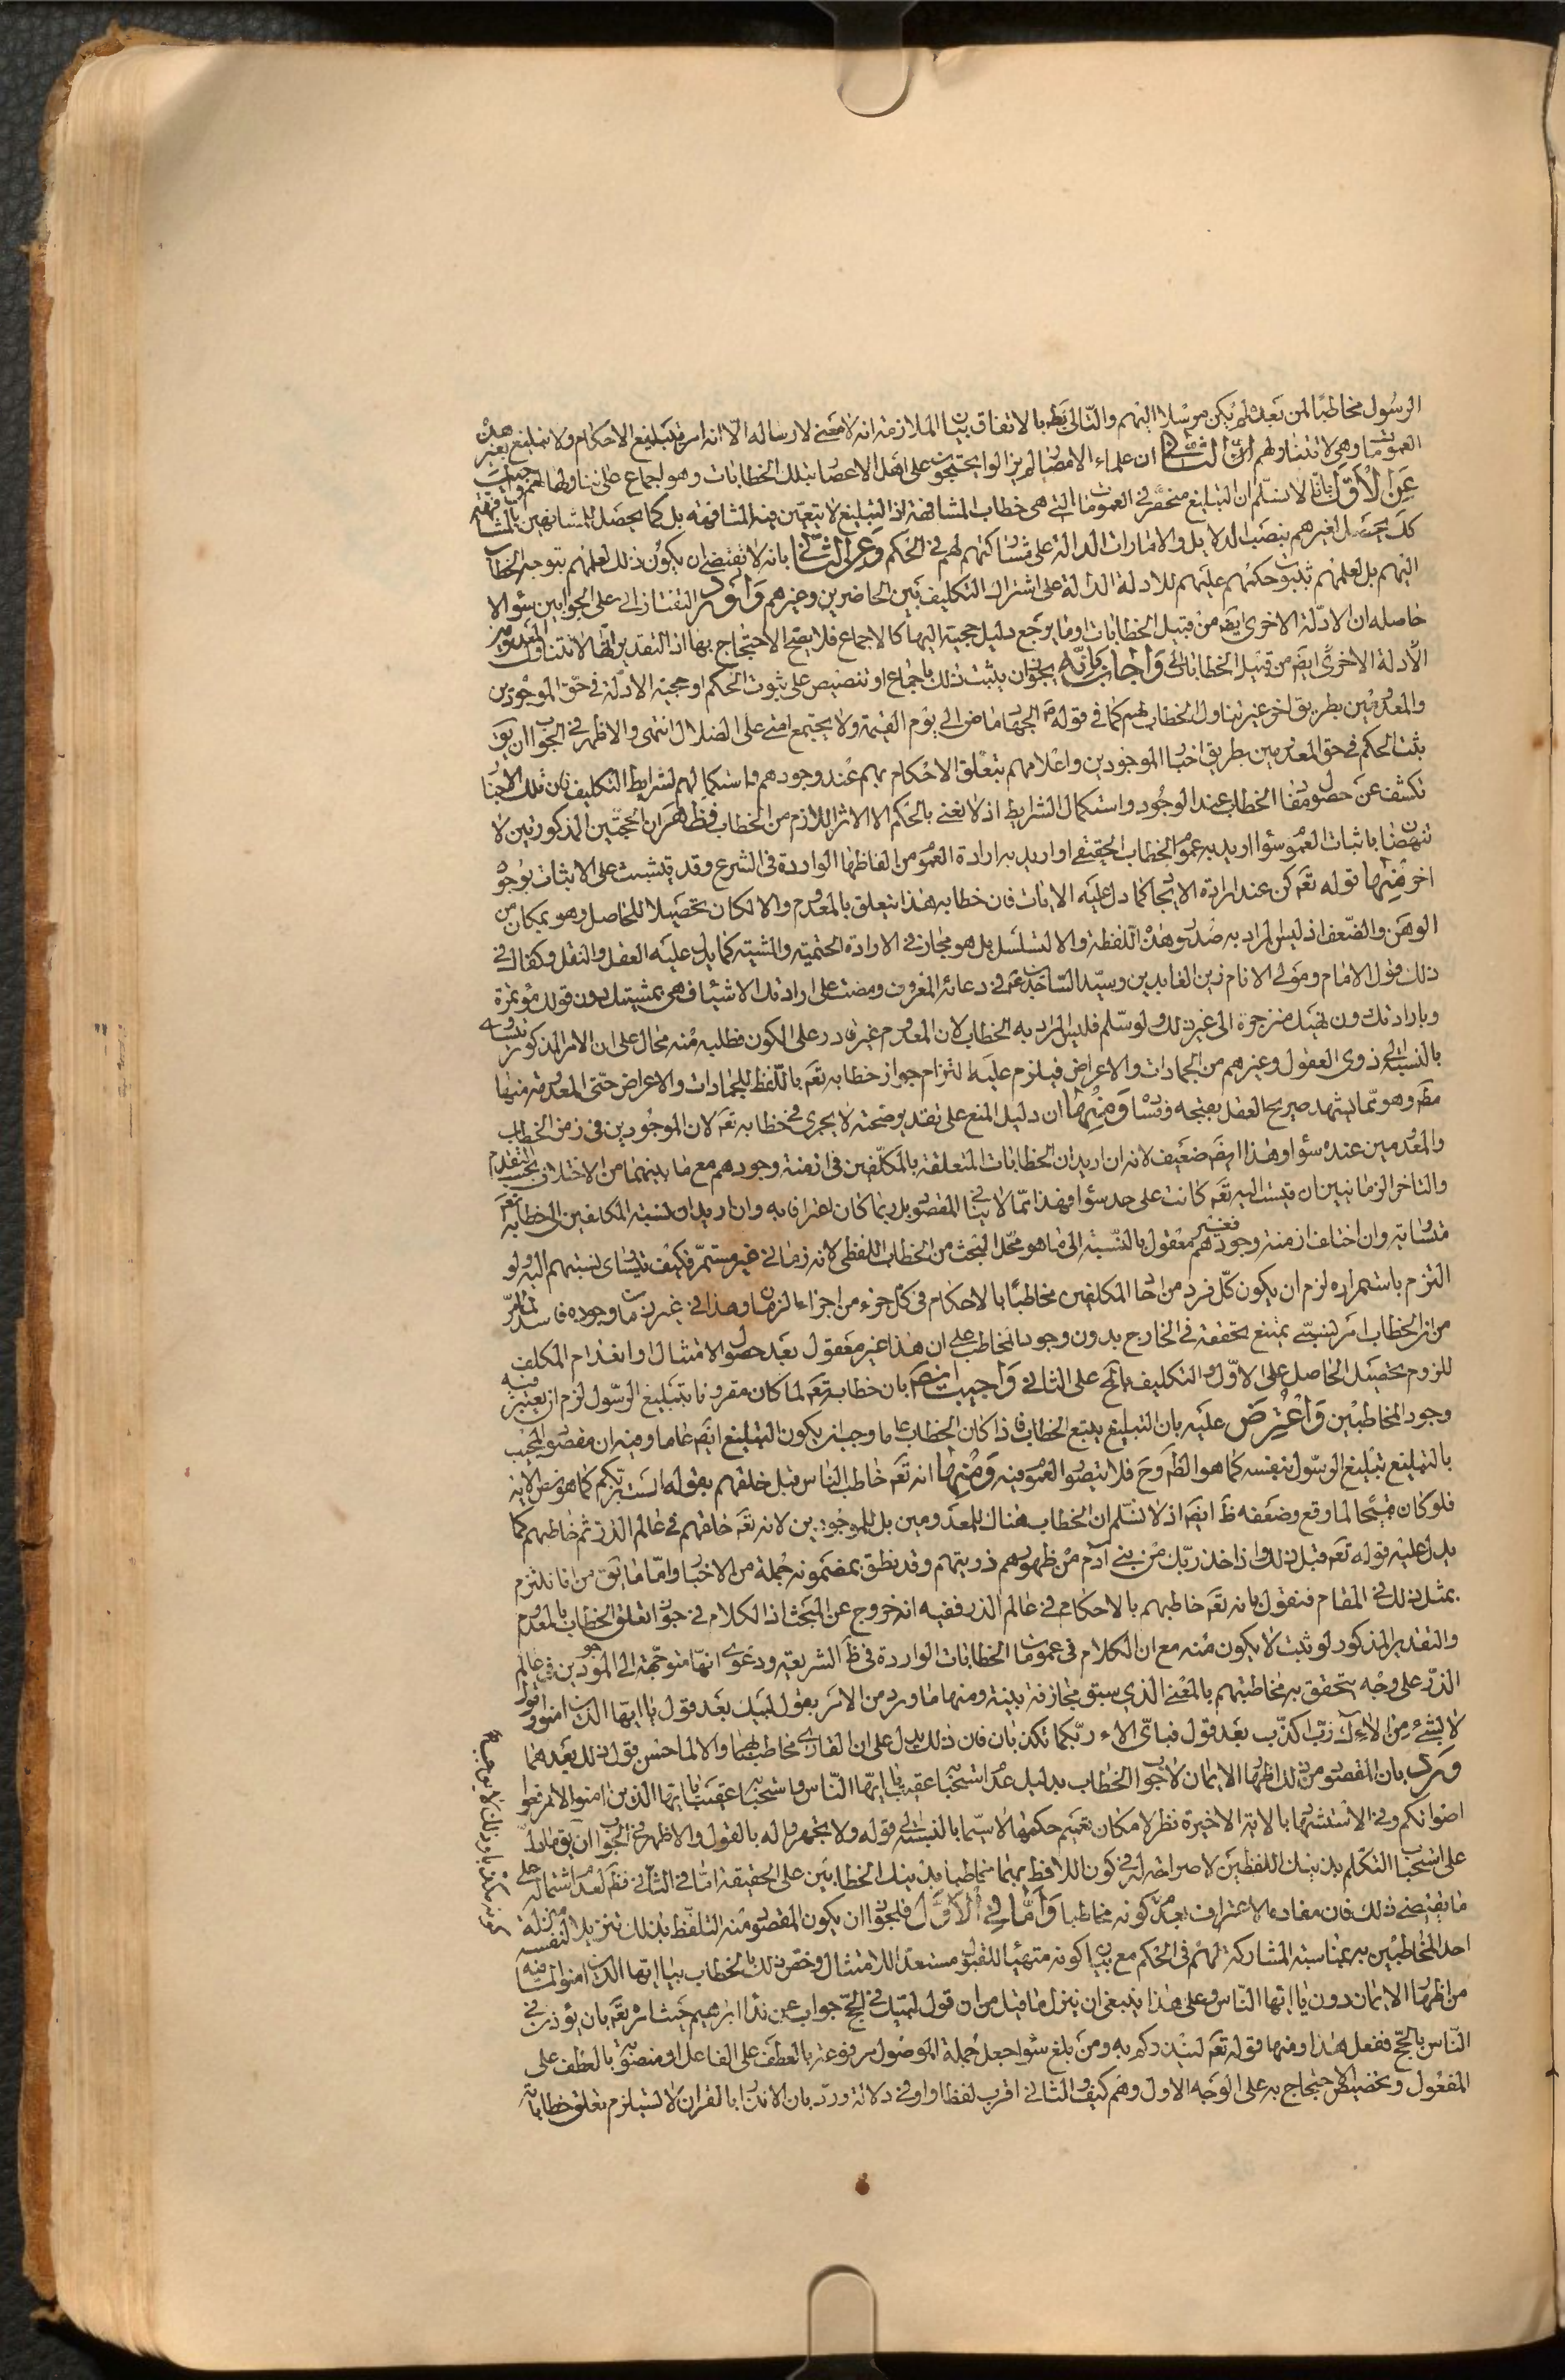 الرسول مخاطبا لمن بعده لم يكن مرسلا اليهم والتالى بط بالاتفاق بيان الملازمة انه لا معنى لارساله الا انه امر بتبليغ الاحكام ولا تبليغ بغير هذه
العمومات وهى لا تتناولهم الثانى ان علماء الامصار لم يزالوا يحتجون على اهل الاعصار بتلك الخطابات وهو اجماع على تناولها لهم واجيب
عن الاول بانا لا نسلم ان التبليغ منحصر فى العمومات التى هى خطاب المشافهة اذ التبليغ لا يتعين فيه المشافهة بل كما يحصل للمشافهين بالمشافهة
كك يحصل لغيرهم بنصب الدلايل والامارات الدالة على مشاركتهم لهم فى الحكم وعن الثانى بانه لا يقتضى ان يكون ذلك لعلمهم بتوجه الخطاب
اليهم بل لعلمهم بثبوت حكمهم عليهم للادلة الدالة على اشتراك التكليف بين الحاضرين وغيرهم واورد التفتازانى على الجوابين سؤالا
حاصله ان الادلة الاخرى ايض من قبيل الخطابات او ما يرجع دليل حجيته اليها كالاجماع فلا يصح الاحتجاج بها اذ التقدير انها لا تتناول المعدومين
الادلة الاخرى ايض من قبيل الخطابات واجاب بانه يجوز ان يثبت ذلك باجماع او تنصيص على ثبوت الحكم او حجية الادلة فى حق الموجودين
والمعدومين بطريق اخر غير تناول الخطاب لهم كما فى قوله ص الجهاد ماض الى يوم القيمة ولا يجتمع امتى على الضلال انتهى والاظهر فى الجواب ان يق
يثبت الحكم فى حق المعدومين بطريق اخبار الموجودين واعلامهم بتعلق الاحكام بهم عند وجودهم واستكمالهم لشرايط التكليف فان تلك الاخبار
تكشف عن حصول مفاد الخطاب عند الوجود واستكمال الشرايط اذ لا نعنى بالحكم الا الاثر اللازم من الخطاب فظهر ان الحجتين المذكورتين لا
تنهضان باثبات العموم سواء اريد به عموم الخطاب الحقيقى او اريد به ارادة العموم من الفاظها الواردة فى الشرع وقد يتشبث على الاثبات بوجوه
اخر منها قوله تعم كن عند ارادة الايجاد كما دل عليه الايات فان خطابه هذا يتعلق بالمعدوم والا لكان تحصيلا للحاصل وهو بمكان من
الوهن والضعف اذ ليس المراد به صدور هذه اللفظة والا لتسلسل بل هو مجاز فى الارادة الحتمية والمشية كما يدل عليه العقل والنقل وكفاك فى
ذلك قول الامام ومولى الانام زين العابدين وسيد الساجدين ع فى دعائه المعروف ومضت على ارادتك الاشياء فهى بمشيتك دون قولك مؤتمرة
وبارادتك دون نهيك منزجرة الى غير ذلك ولو سلم فليس المراد به الخطاب لان المعدوم غير قادر على الكون فطلبه منه محال على ان الامر المذكور
بالنسبة الى ذوى العقول وغيرهم من الجمادات والاعراض فيلزم عليه التزام جواز خطابه تعم باللفظ للجمادات والاعراض حتى المعدومة منها
مط وهو مما يشهد صريح العقل بقبحه وفساده ومنها ان دليل المنع على تقدير صحته لا يجرى فى خطابه تعم لان الموجودين فى زمن الخطاب
والمعدومين عنده سواء وهذا ايض ضعيف لانه ان اريد ان الخطابات المتعلقة بالمكلفين فى ازمنة وجودهم مع ما بينهما من الاختلاف بحسب التقدم
والتاخر الزمانيين ان قيست اليه تعم كانت على حد سواء فهذا مما لا ينافى المقصود بل ربما كان اعترافا به وان اريد ان نسبة المكلفين الى خطابه تعم
متساوية وان اختلف ازمنة وجودهم فغير معقول بالنسبة الى ما هو محل البحث من الخطاب اللفظى لانه زمانى غير مستمر فكيف يتساوى نسبتهم اليه ولو
التزم باستمراره لزم ان يكون كل فرد من احاد المكلفين مخاطبا بالاحكام فى كل جزء من اجزاء الزمان وهذا فى غير زمان وجوده فاسد لما مر
من ان الخطاب امر نسبى يمتنع تحققه فى الخارج بدون وجود المخاطب على ان هذا غير معقول بعد حصول الامتثال او انعدام المكلف
للزوم تحصيل الحاصل على الاول والتكليف بالمح على الثانى واجيب ايض بان خطابه تعم لما كان مقرونا بتبليغ الرسول لزم ان يعتبر فيه
وجود المخاطبين واعترض عليه بان التبليغ يتبع الخطاب فاذا كان الخطاب عاما وجب ان يكون التبليغ ايض عاما وفيه ان مقصود المجيب
بالتبليغ تبليغ الرسول بنفسه كما هو الظ وح فلا يتصور العموم فيه ومنها انه تعم خاطب الناس قبل خلقهم بقوله الست بربكم كما هو نص الاية
فلو كان قبيحا لما وقع وضعفه ظ ايض اذ لا نسلم ان الخطاب هناك للمعدومين بل للموجودين لانه تعم خلقهم فى عالم الذر ثم خاطبهم كما
يدل عليه قوله تعم قبل ذلك واذ اخذ ربك من بنى آدم من ظهورهم ذريتهم وقد نطق بمضمونه جملة من الاخبار واما ما يق من انا نلتزم
بمثل ذلك فى المقام فنقول بانه تعم خاطبهم بالاحكام فى عالم الذر ففيه انه خروج عن المبحث اذ الكلام فى جواز تعلق الخطاب بالمعدوم
والتقدير المذكور لو ثبت لا يكون منه مع ان الكلام فى عمومات الخطابات الواردة فى ظ الشريعة ودعوى انها متوجهة الى الموجودين فى عالم
الذر على وجه يتحقق به مخاطبتهم بالمعنى الذى سبق مجازفة بينة ومنها ما ورد من الامر بقول لبيك بعد قول يا ايها الذين امنوا وقول
لا بشئ من الاءك رب اكذب بعد قول فباى الاء ربكما تكذبان فان ذلك يدل على ان القارى مخاطب بهما والا لما حسن قول ذلك بعدهما
ورد بان المقصود من ذلك اظهار الايمان لا جواب الخطاب بدليل عدم استحبابه عقيب يا ايها الناس واستحبابه عقيب يا ايها الذين امنوا لا ترفعوا
اصواتكم وفى الاستشهاد بالاية الاخيرة نظر لامكان تعميم حكمها لا سيما بالنسبة الى قوله ولا تجهروا له بالقول والاظهر فى الجواب ان يق ما دل
على استحباب التكلم بذينك اللفظين لا صراحة له فى كون اللافظ بهما مخاطبا بذينك الخطابين على الحقيقة اما فى الثانى فظ لعدم اشتماله على
ما يقتضى ذلك فان مفاده الاعتراف بعد كونه مخاطبا واما فى الاول فلجواز ان يكون المقصود منه التلفظ بذلك تنزيلا لنفسه منزلة
احد المخاطبين به بمناسبة المشاركة لهم فى الحكم مع بيان كونه متهيئا للقبول مستعدا للامتثال وخص ذلك بالخطاب بيا ايها الذين امنوا لما فيه
من اظهار الايمان دون يا ايها الناس وعلى هذا ينبغى ان ينزل ما قيل من ان قول لبيك فى الحج جواب عن نداء ابرهيم حيث امره تعم بان يؤذن فى
الناس بالحج ففعل هذا ومنها قوله تعم لينذركم به ومن بلغ سواء جعل جملة الموصول مرفوعة بالعطف على الفاعل او منصوبة بالعطف على
المفعول وتخصيص الاحتجاج به على الوجه الاول وهم كيف والثانى اقرب لفظا واوفى دلالة ورد بان الانذار بالقران لا يستلزم تعلق خطاباته